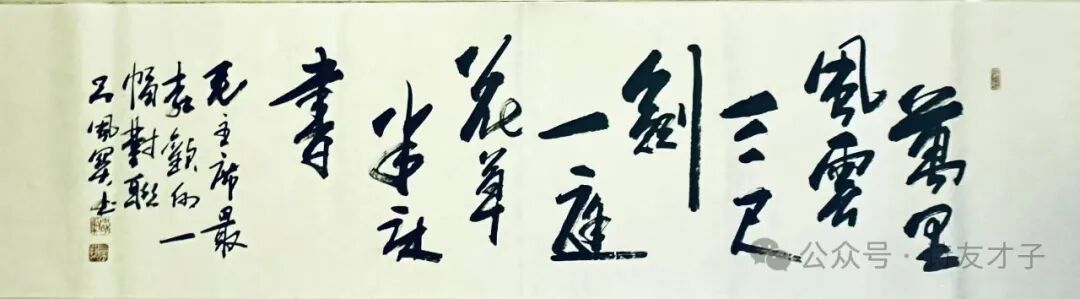 萬里
風雲
三尺
劍
一庭
花草
半牀
書
毛主席最
喜歡的一
幅對聯
书
公众号 · 友才子